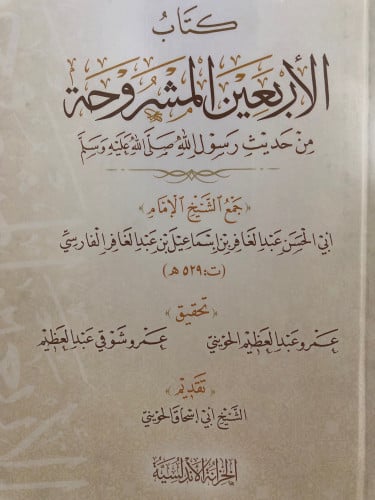 كتاب
الأربعين المشروحة
من حديث رسول الله صلى الله عليه وسلم
جمع الشيخ الإمام
أبي الحسن عبد الغافر بن إسماعيل بن عبد الغافر الفارسي
(ت: ٥٢٩ هـ)
تحقيق
عمرو عبد العظيم الحويني عمرو شوقي عبد العظيم
تقديم
الشيخ أبي إسحاق الحويني
الخزانة الأندلسية